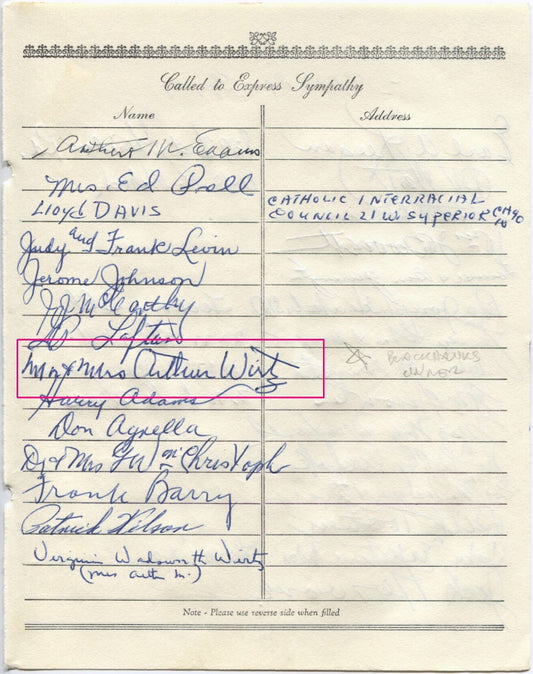 Called to Express Sympathy
Name Address
Arthur M. Evans
Mrs. Ed Prell
LLOYD DAVIS CATHOLIC INTERRACIAL
COUNCIL 21 W SUPERIOR CHGO
Judy and Frank Levin
Jerome Johnson
J.J. McCarthy
Lofton
Mr & Mrs Arthur Wirtz BLACKHAWKS
OWNER
Harry Adams
Don Agrella
Dr & Mrs
Frank Barry
Patrick Wilson
Virginia Wadsworth Wirtz
(Mrs Arthur M.)
Note - Please use reverse side when filled